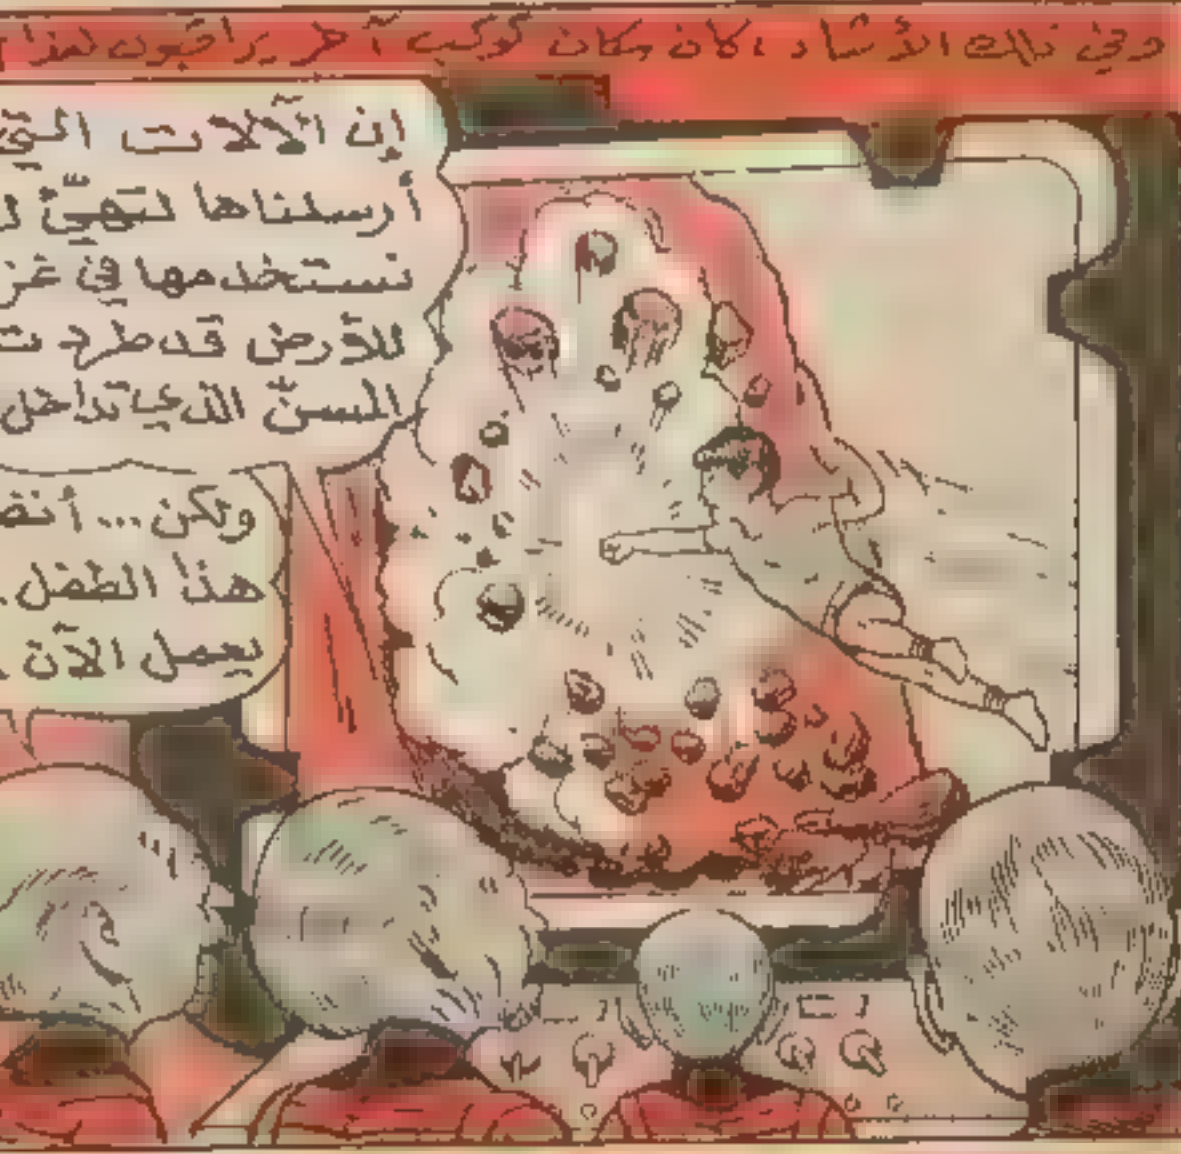 وفي تلك الأثناء، كان سكان كوكب آخر يراقبون
إن الآلات التي
أرسلناها لتهيّئ
نستخدمها في
للأرض قد طردت
المسنّ الذي تداخل
ولكن... أنقذ
هذا الطفل
يعمل الآن